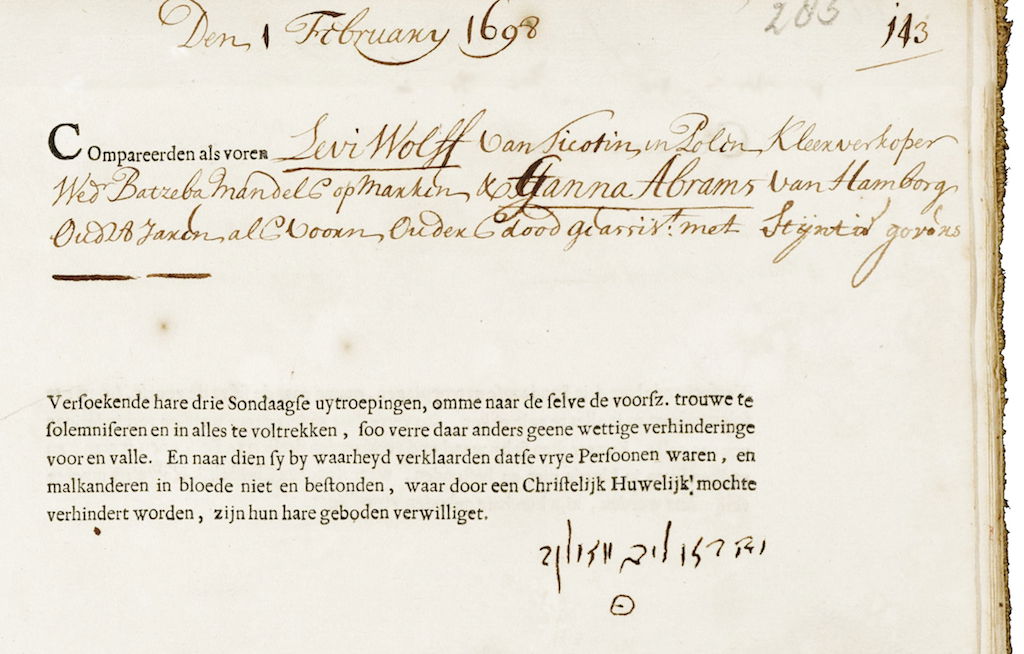 203
Den 1 February 1698 143
Compareerden als voren Levi Wolff van Ticotin in Polen Kleerverkoper
Wedr Batzeba Mandels op Marken & Hanna Abrams van Hamborg
Oud 28 Jaren als voorn Ouders dood geassist. met Stijntie govers
Versoekende hare drie Sondaagse uytroepingen, omme naar de selve de voorsz. trouwe te
solemniseren en in alles te voltrekken, soo verre daar anders geene wettige verhinderinge
voor en valle. En naar dien sy by waarheyd verklaarden datse vrye Persoonen waren, en
malkanderen in bloede niet en bestonden, waar door een Christelijk Huwelijk! mochte
verhindert worden, zijn hun hare geboden verwilliget.